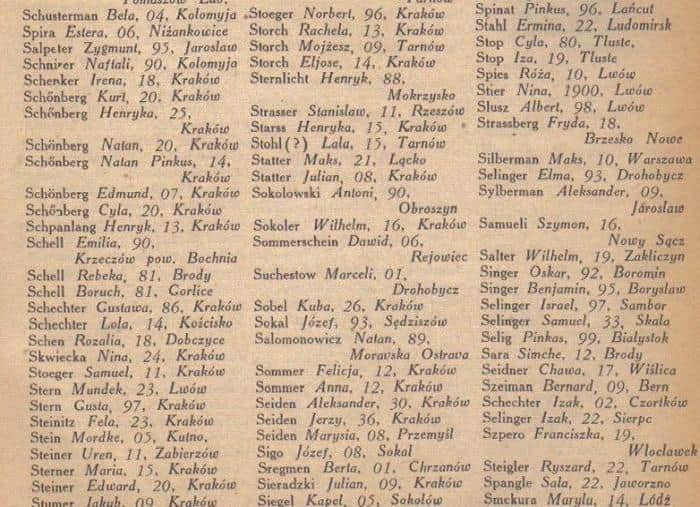 Tarnów
Schusterman Bela, 04, Kolomyja
Spira Estera, 06, Niżankowice
Salpeter Zygmunt, 95, Jaroslaw
Schnirer Naftali, 90, Kolomyja
Schenker Irena, 18, Kraków
Schönberg Kurt, 20, Kraków
Schönberg Henryka, 25,
Kraków
Schönberg Natan, 20, Kraków
Schönberg Natan Pinkus, 14,
Kraków
Schönberg Edmund, 07, Kraków
Schönberg Cyla, 20, Kraków
Schpanlang Henryk, 13, Kraków
Schell Emilia, 90,
Krzeczów pow. Bochnia
Schell Rebeka, 81, Brody
Schell Boruch, 81, Gorlice
Schechter Gustawa, 86, Kraków
Schechter Lola, 14, Kościsko
Schen Rozalia, 18, Dobczyce
Skwiecka Nina, 24, Kraków
Stoeger Samuel, 11, Kraków
Stern Mundek, 23, Lwów
Stern Gusta, 97, Kraków
Steinitz Fela, 23, Kraków
Stein Mordke, 05, Kutno,
Steiner Uren, 11, Zabierzów
Sterner Maria, 15, Kraków
Steiner Edward, 20, Kraków
Stumer Jakub, 09, Kraków
Stoeger Norbert, 96, Kraków
Storch Rachela, 13, Kraków
Storch Mojżesz, 09, Tarnów
Storch Eljose, 14, Kraków
Sternlicht Henryk, 88,
Mokrzysko
Strasser Stanislaw, 11, Rzeszów
Starss Henryka, 15, Kraków
Stohl (?) Lala, 15, Tarnów
Statter Maks, 21, Lącko
Statter Julian, 08, Kraków
Sokolowski Antoni, 90,
Obroszyn
Sokoler Wilhelm, 16, Kraków
Sommerschein Dawid, 06,
Rejowiec
Suchestow Marceli, 01,
Drohobycz
Sobel Kuba, 26, Kraków
Sokal Józef, 93, Sędziszów
Salomonowicz Natan, 89,
Moravska Ostrava
Sommer Felicja, 12, Kraków
Sommer Anna, 12, Kraków
Seiden Aleksander, 30, Kraków
Seiden Jerzy, 36, Kraków
Seiden Marysia, 08, Przemyśl
Sigo Józef, 08, Sokal
Sregmen Berta, 01, Chrzanów
Sieradzki Julian, 09, Kraków
Siegel Kapel, 05, Sokolów
Spinat Pinkus, 96, Lańcut
Stahl Ermina, 22, Ludomirsk
Stop Cyla, 80, Tluste,
Stop Iza, 19, Tluste
Spies Róża, 10, Lwów
Stier Nina, 1900, Lwów
Slusz Albert, 98, Lwów
Strassberg Fryda, 18,
Brzesko Nowe
Silberman Maks, 10, Warszawa
Selinger Elma, 93, Drohobycz
Sylberman Aleksander, 09,
Jaroslaw
Samueli Szymon, 16,
Nowy Sącz
Salter Wilhelm, 19, Zakliczyn
Singer Oskar, 92, Boromin
Singer Benjamin, 95, Boryslaw
Selinger Israel, 97, Sambor
Selinger Samuel, 33, Skala
Selig Pinkas, 99, Bialystok
Sara Simche, 12, Brody
Seidner Chawa, 17, Wiślica
Szeiman Bernard, 09, Bern
Schechter Izak, 02, Czortków
Selinger Izak, 22, Sierpc
Szpero Franciszka, 19,
Wloclawek
Steigler Ryszard, 22, Tarnów
Spangle Sala, 22, Jaworzno
Smekura Maryla, 14, Lódź